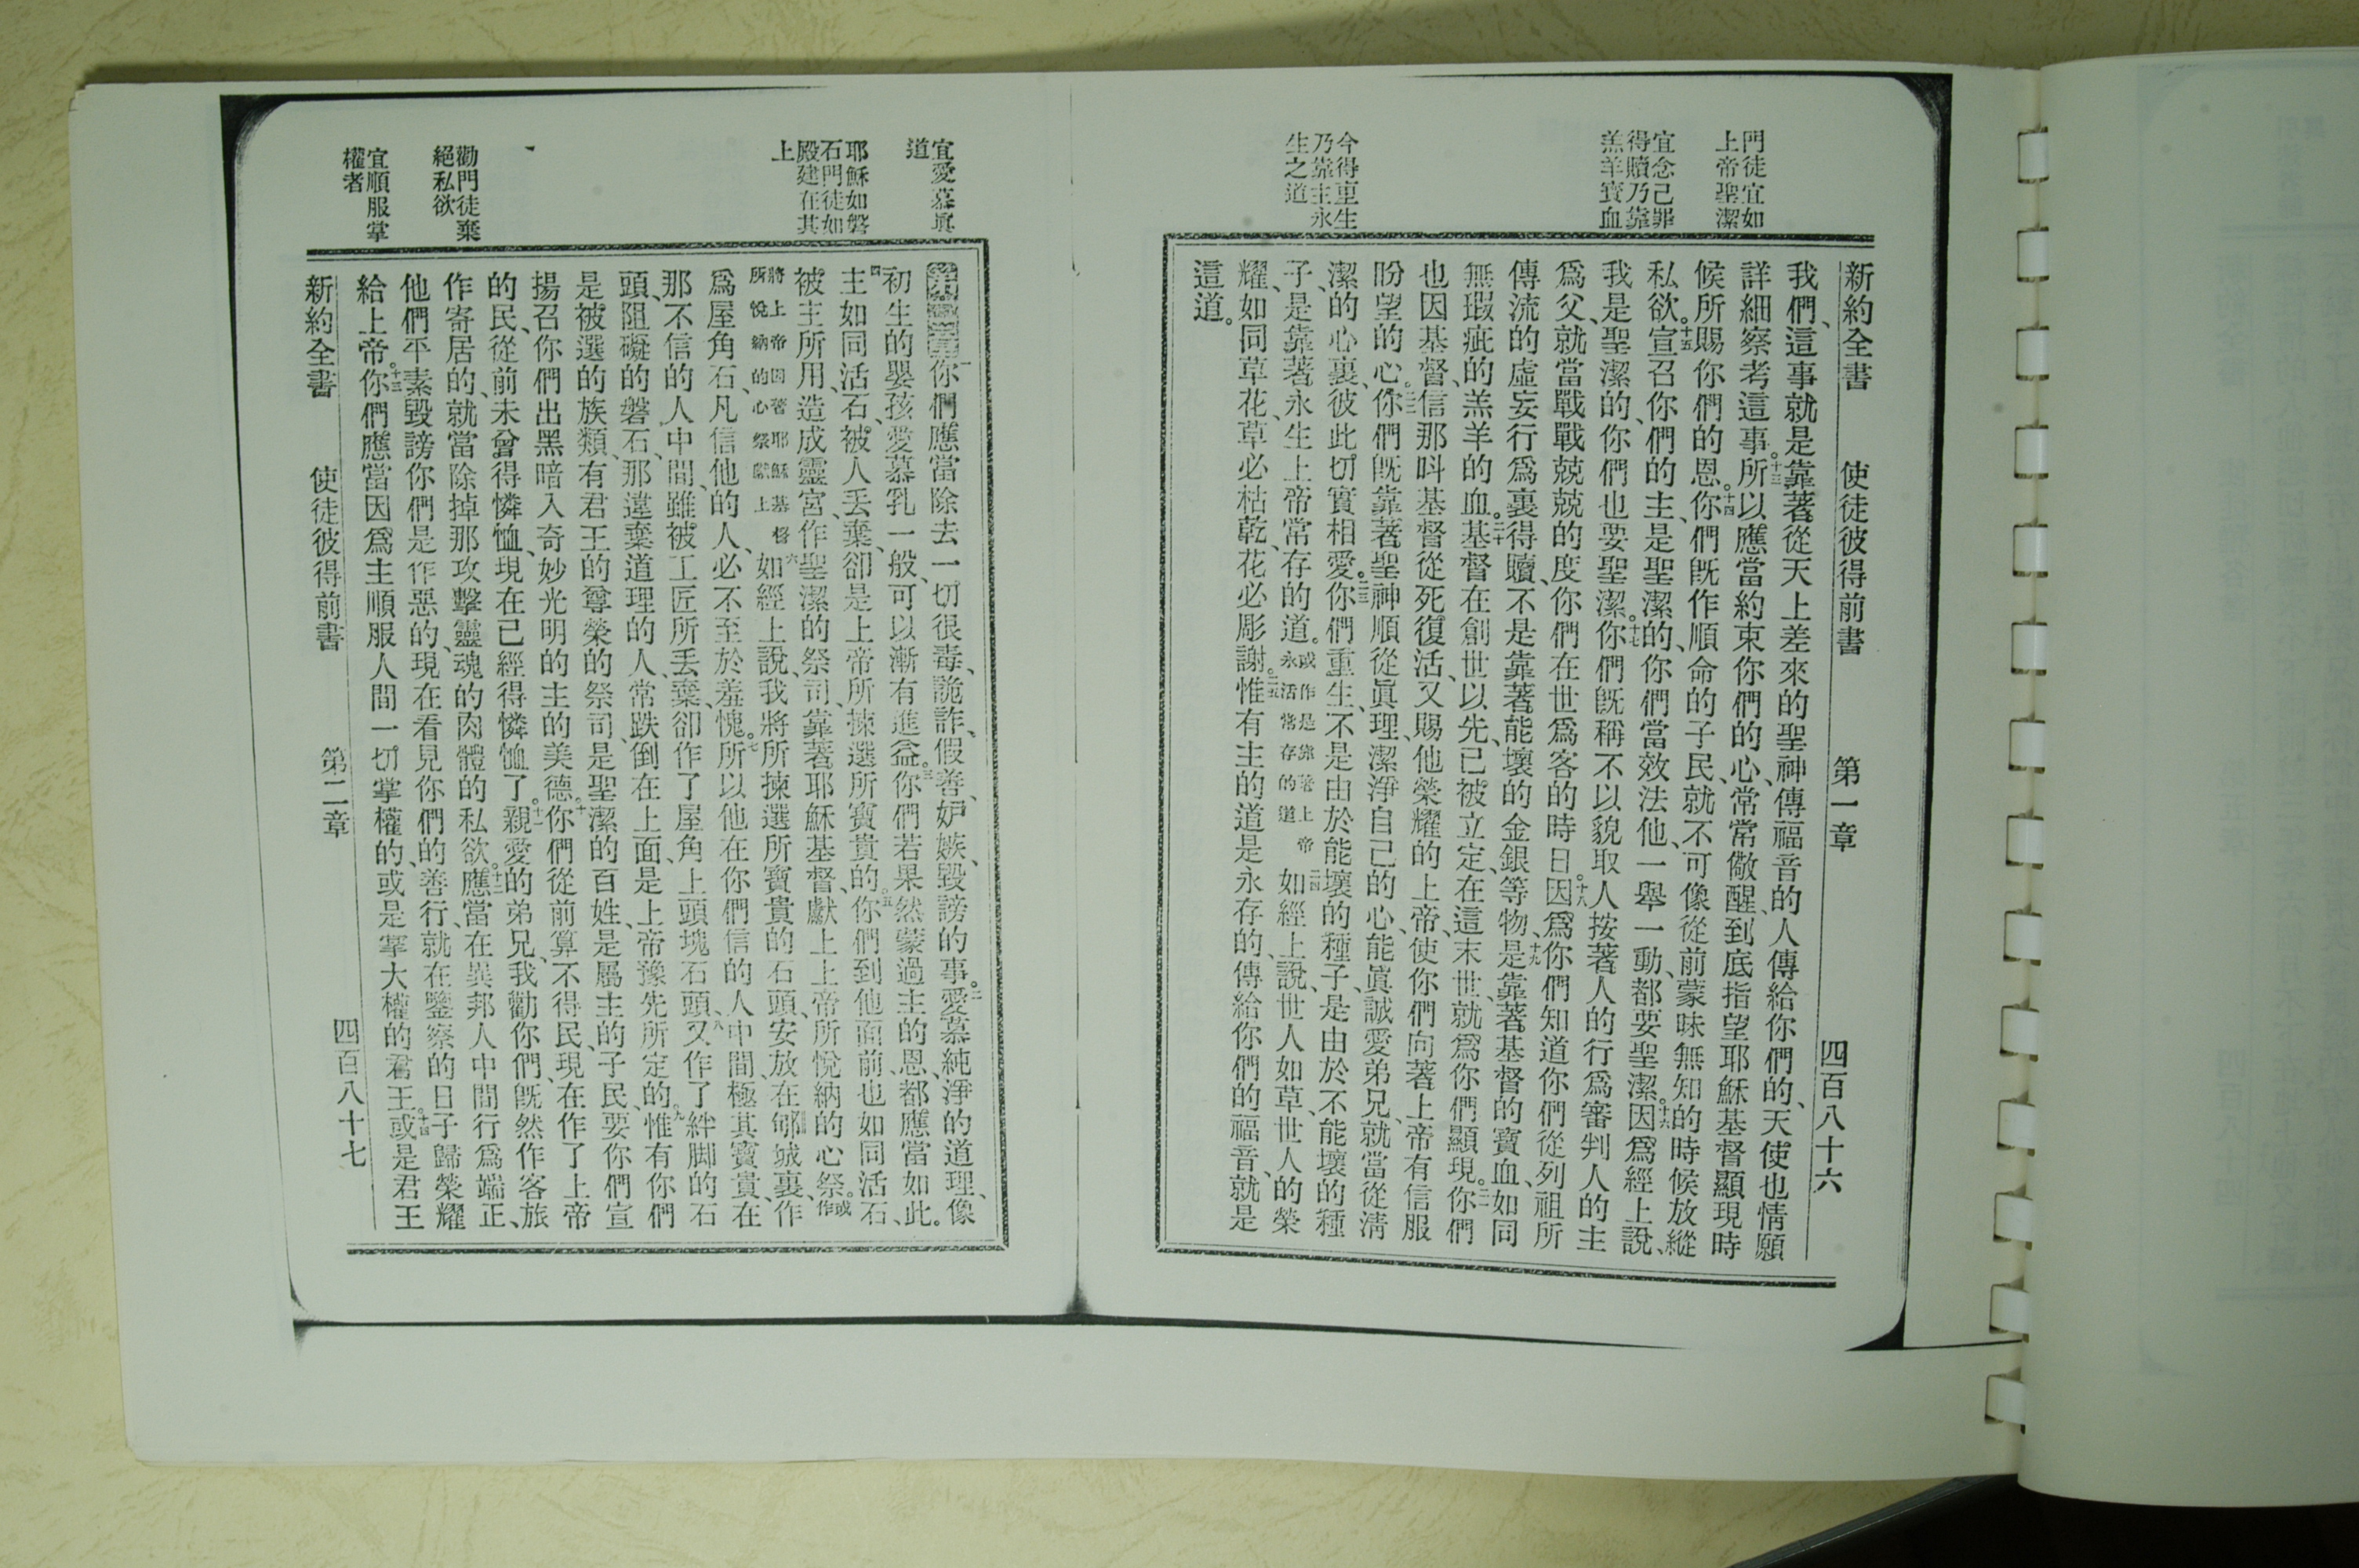 新約全書 使徒彼得前書 第一章 四百八十六
門徒宜如
上帝聖潔
宜念己罪
得贖乃靠
羔羊寶血
今得重生
乃靠主永
生之道
我們、這事就是靠著從天上差來的聖神、傳福音的人傳給你們的、天使也情願
詳細察考這事。十三所以應當約束你們的心、常常儆醒、到底指望耶穌基督顯現時
候所賜你們的恩。十四你們旣作順命的子民、就不可像從前蒙昧無知的時候放縱
私欲。十五宣召你們的主、是聖潔的、你們當效法他、一舉一動、都要聖潔。十六因爲經上說、
我是聖潔的、你們也要聖潔。十七你們旣稱不以貌取人按著人的行爲審判人的主
爲父、就當戰戰兢兢的度你們在世爲客的時日。十八因爲你們知道你們從列祖所
傳流的虛妄行爲裏得贖、不是靠著能壞的金銀等物、十九是靠著基督的寶血、如同
無瑕疵的羔羊的血。二十基督在創世以先、已被立定、在這末世、就爲你們顯現。二一你們
也因基督、信那呌基督從死復活、又賜他榮耀的上帝、使你們向著上帝有信服
盼望的心。二二你們旣靠著聖神順從眞理、潔淨自己的心、能眞誠愛弟兄、就當從淸
潔的心裏、彼此切實相愛。二三你們重生、不是由於能壞的種子、是由於不能壞的種
子、是靠著永生上帝常存的道。或作是靠著上帝永活常存的道二四如經上說、世人如草、世人的榮
耀、如同草花、草必枯乾、花必彫謝。二五惟有主的道是永存的、傳給你們的福音、就是
這道。
宜愛慕眞
道
耶穌如磐
石門徒如
殿建在其
上
勸門徒棄
絕私欲
宜順服掌
權者
第二章一你們應當除去一切很毒、詭詐、假善、妒嫉、毀謗的事。二愛慕純淨的道理、像
初生的嬰孩、愛慕乳一般、可以漸有進益。三你們若果然蒙過主的恩、都應當如此。
四主如同活石、被人丟棄、卻是上帝所揀選所寶貴的。五你們到他面前、也如同活石、
被主所用、造成靈宮、作聖潔的祭司、靠著耶穌基督、獻上上帝所悅納的心祭。或作
將上帝因著耶穌基督所悅納的心祭獻上六如經上說、我將所揀選所寶貴的石頭、安放在郇城裏、作
爲屋角石、凡信他的人、必不至於羞愧。七所以他在你們信的人中間、極其寶貴、在
那不信的人中間、雖被工匠所丟棄、卻作了屋角上頭塊石頭、八又作了絆脚的石
頭、阻礙的磐石、那違棄道理的人、常跌倒在上面、是上帝豫先所定的。九惟有你們
是被選的族類、有君王的尊榮的祭司、是聖潔的百姓、是屬主的子民、要你們宣
揚召你們出黑暗入奇妙光明的主的美德。十你們從前算不得民、現在作了上帝
的民、從前未曾得憐恤、現在已經得憐恤了。十一親愛的弟兄、我勸你們、旣然作客旅
作寄居的、就當除掉那攻擊靈魂的肉體的私欲。十二應當在異邦人中間行爲端正、
他們平素毀謗你們是作惡的、現在看見你們的善行、就在鑒察的日子歸榮耀
給上帝。十三你們應當因爲主順服人間一切掌權的、或是掌大權的君王。十四或是君王
新約全書 使徒彼得前書 第二章 四百八十七